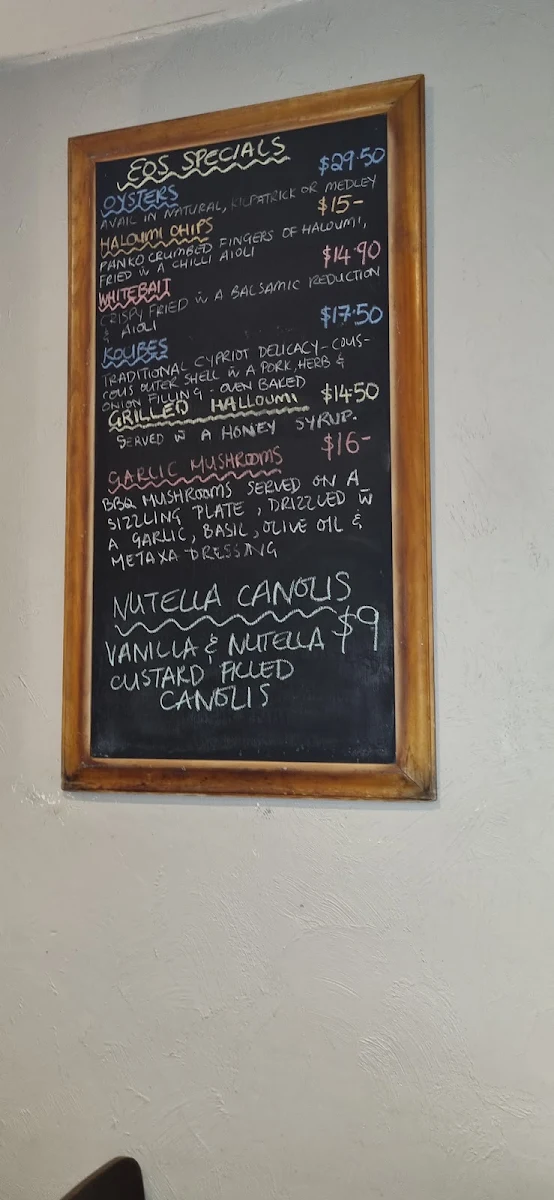 EOS SPECIALS
OYSTERS $29.50
AVAIL IN NATURAL, KILPATRICK OR MEDLEY
HALOUMI CHIPS $15-
PANKO CRUMBED FINGERS OF HALOUMI,
FRIED W A CHILLI AIOLI
WHITEBAIT $14.90
CRISPY FRIED W A BALSAMIC REDUCTION
& AIOLI
KOUBES $17.50
TRADITIONAL CYPRIOT DELICACY - COUS-
COUS OUTER SHELL W A PORK, HERB &
ONION FILLING - OVEN BAKED
GRILLED HALLOUMI $14.50
SERVED W A HONEY SYRUP.
GARLIC MUSHROOMS $16-
BBQ MUSHROOMS SERVED ON A
SIZZLING PLATE, DRIZZLED W
A GARLIC, BASIL, OLIVE OIL &
METAXA DRESSING
NUTELLA CANOLIS
$9
VANILLA & NUTELLA
CUSTARD FILLED
CANOLIS